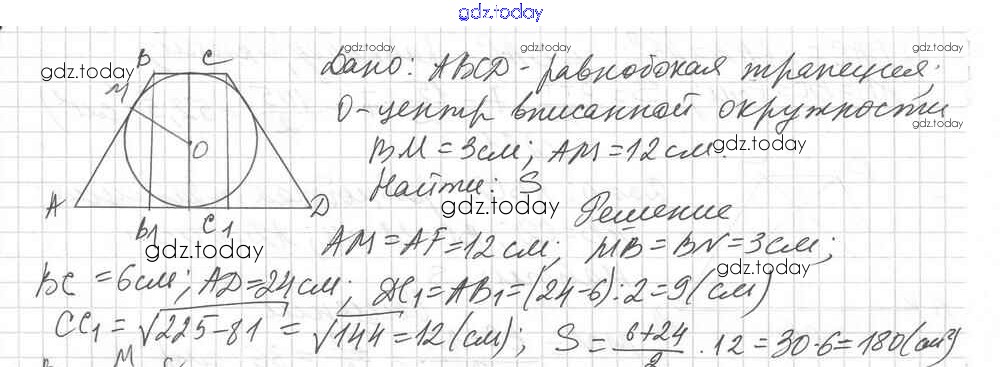 gdz.today
B C
gdz.today
M
O
A D
B1 C1
gdz.today
gdz.today
Дано: ABCD - равнобокая трапеция;
gdz.today
O - центр вписанной окружности
BM = 3см; AM = 12 см.
gdz.today
Найти: S
gdz.today
Решение
AM = AF = 12 см; MB = BN = 3см;
gdz.today
BC = 6см; AD = 24 см; DC1 = AB1 = (24-6):2 = 9 (см)
CC1 = √225-81 = √144 = 12 (см); S = (6+24)/2 · 12 = 30·6 = 180 (см²)
M